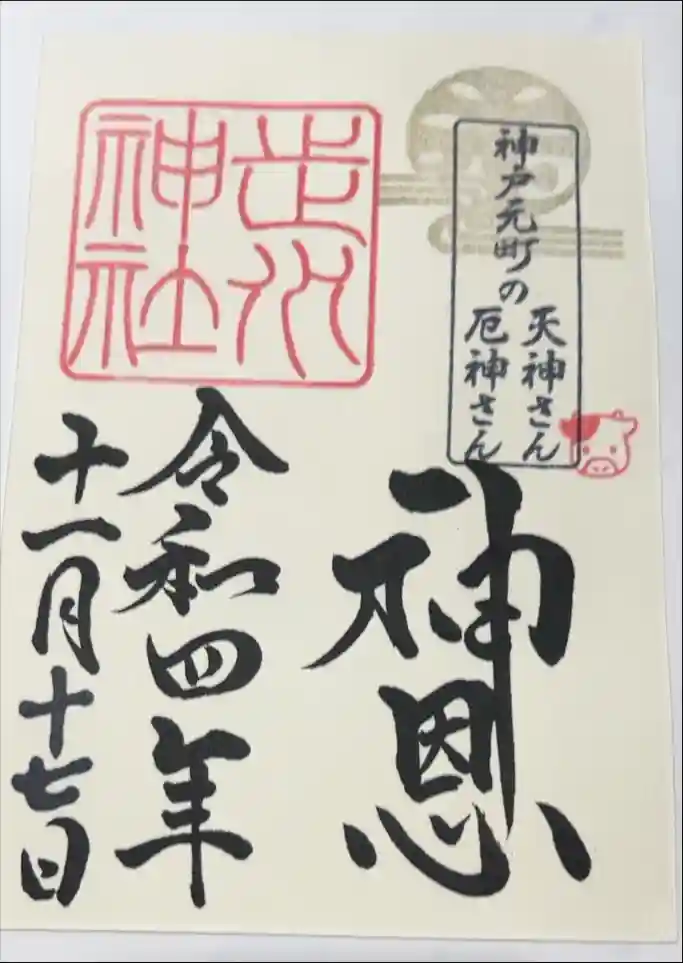 神戸元町の
天神さん
厄神さん
神恩
走水
神社
令和四年
十一月十七日